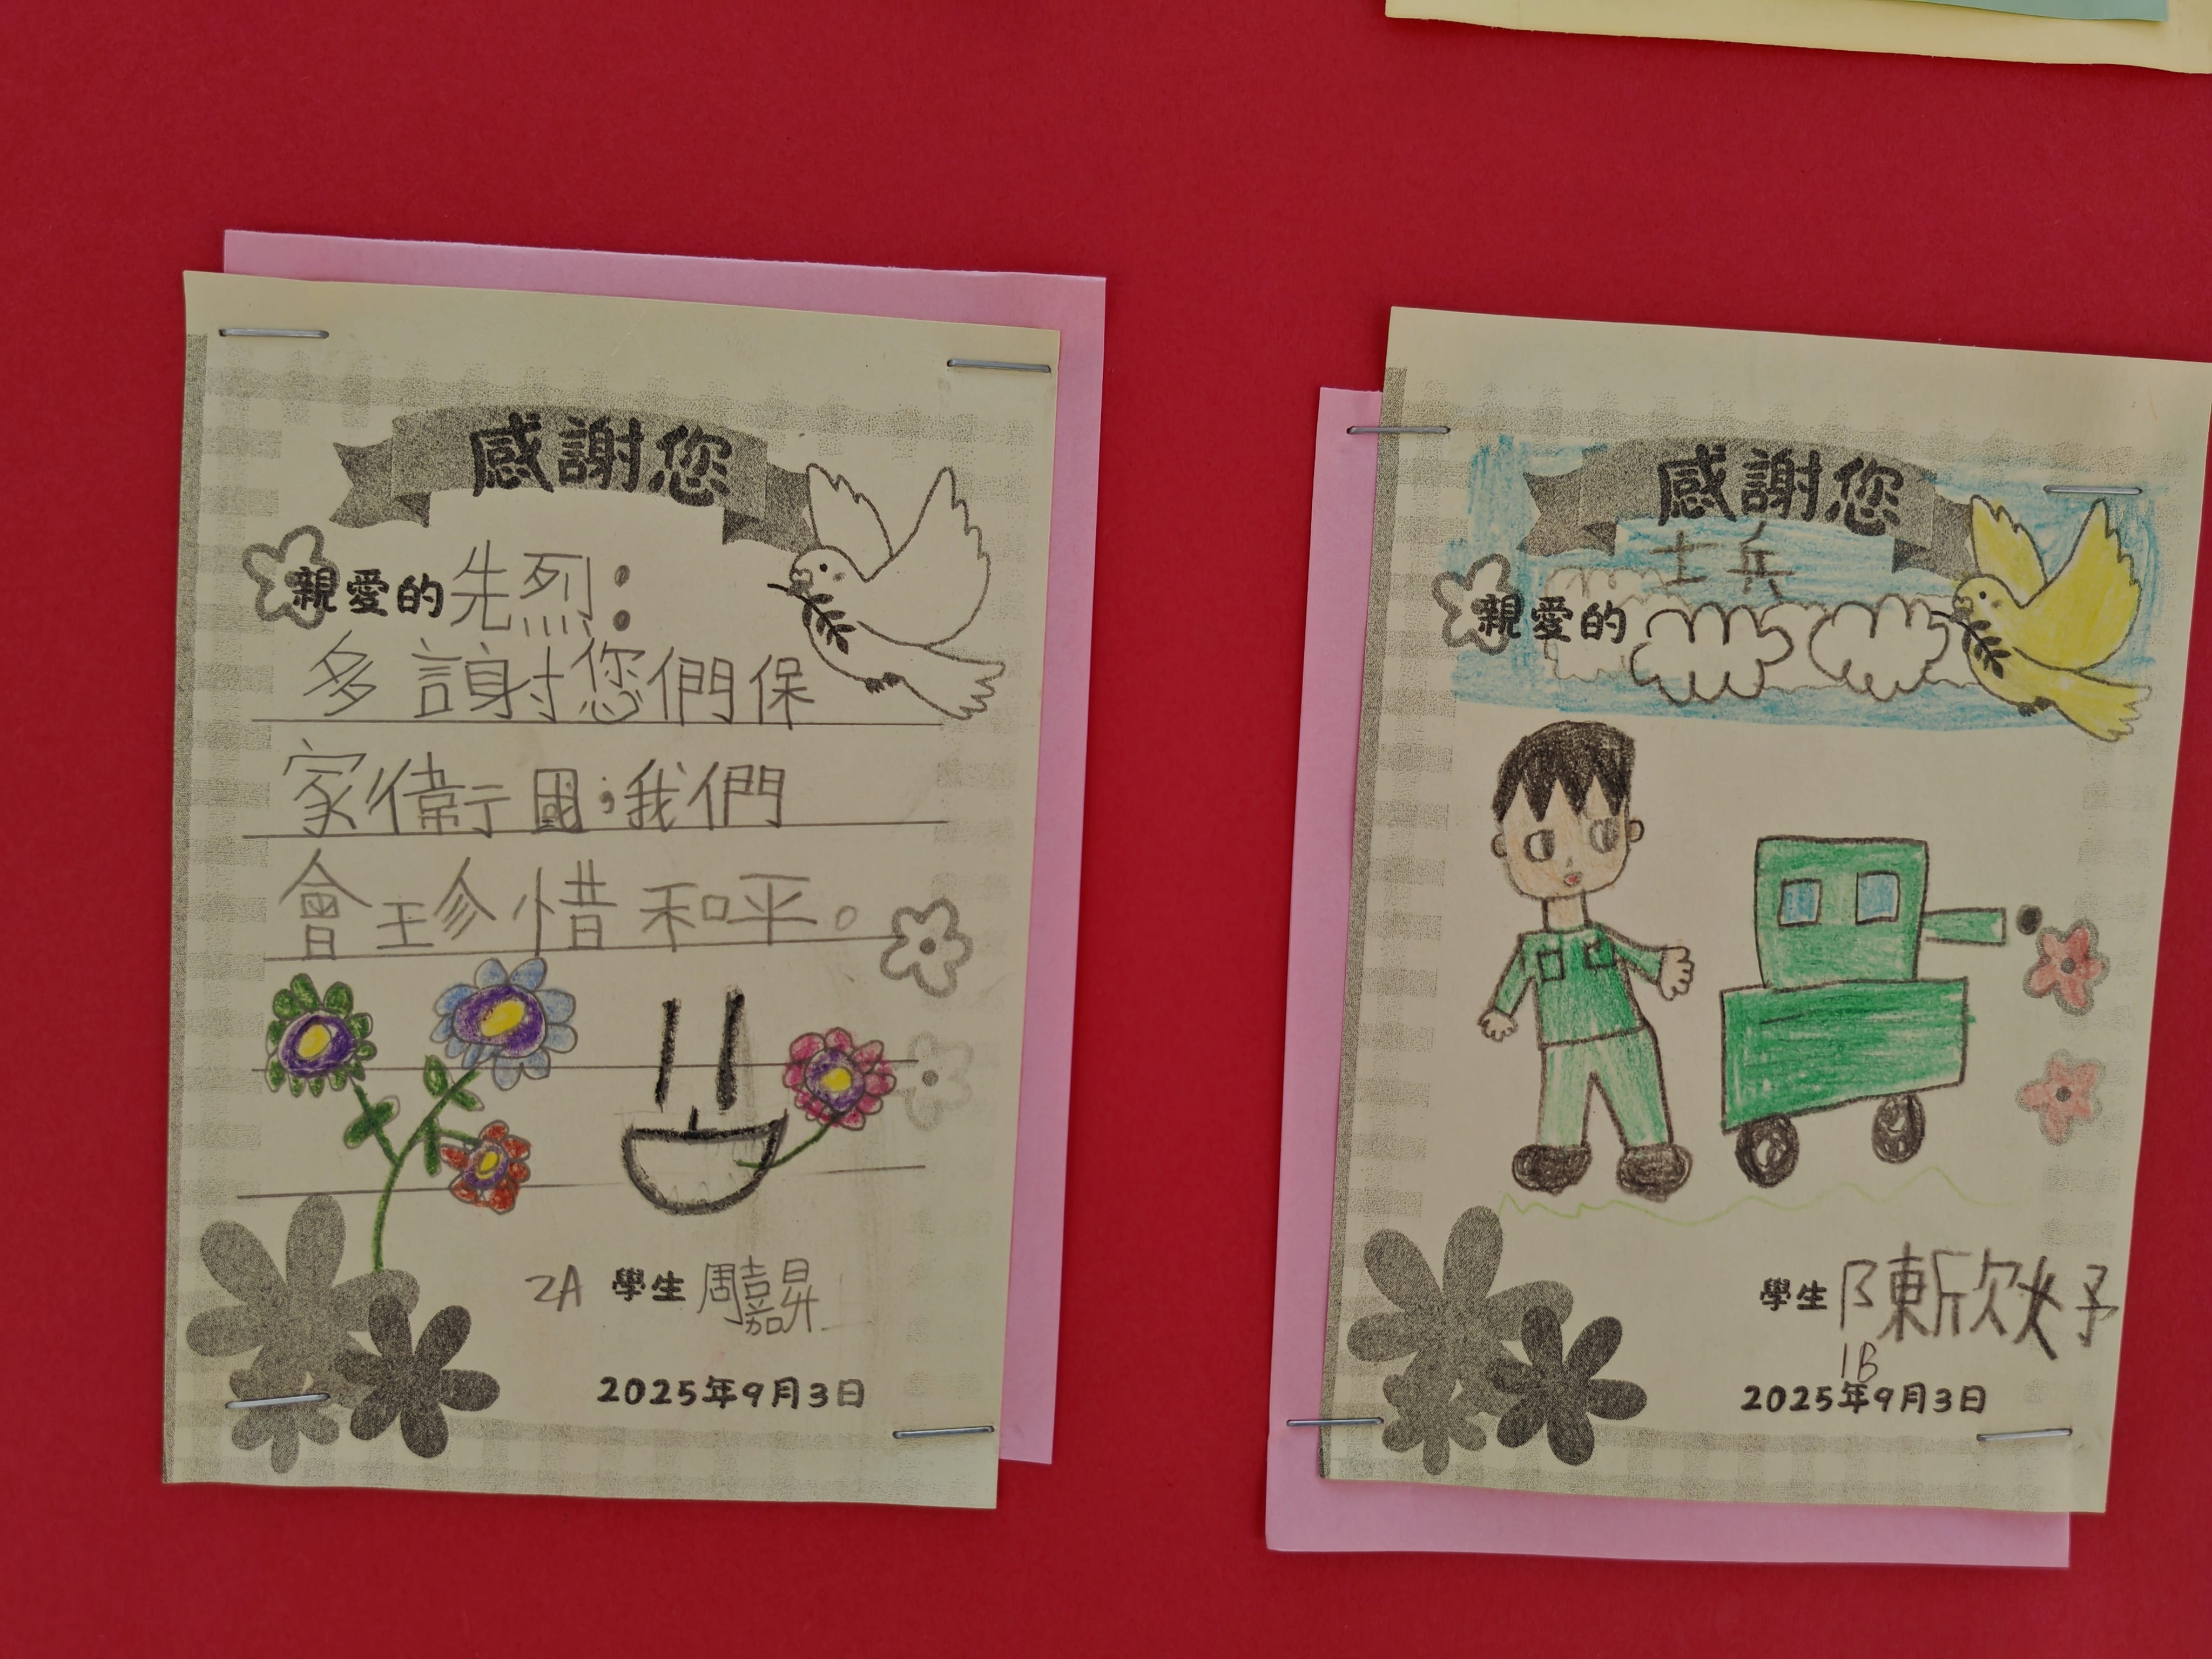 感謝您
親愛的先烈：
多謝您們保
家衞國；我們
會珍惜和平。
2A 學生 周嘉昇
2025年9月3日
感謝您
士兵
親愛的
學生 陳昕妤
1B
2025年9月3日